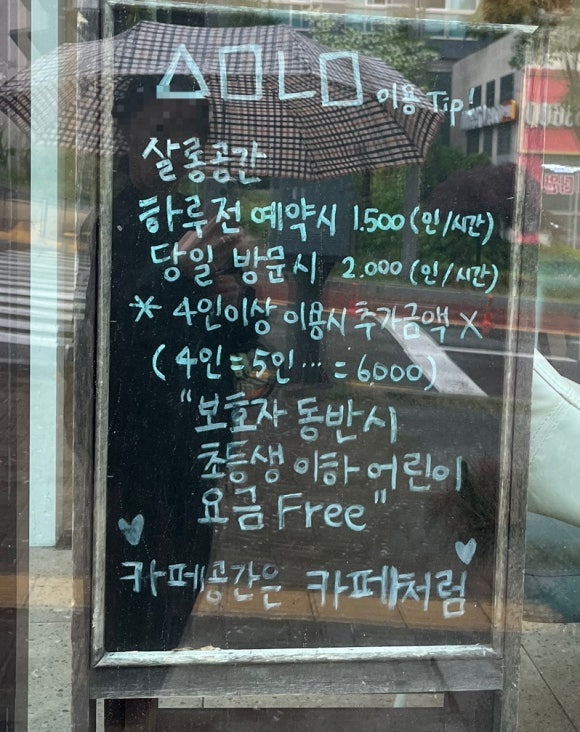 △□ㄴ□ 이용 Tip!
살롱공간
하루전 예약시 1.500 (인/시간)
당일 방문시 2.000 (인/시간)
* 4인이상 이용시 추가금액 X
(4인=5인…=6000)
"보호자 동반시
초등생 이하 어린이
요금 Free"
카페공간은 카페처럼